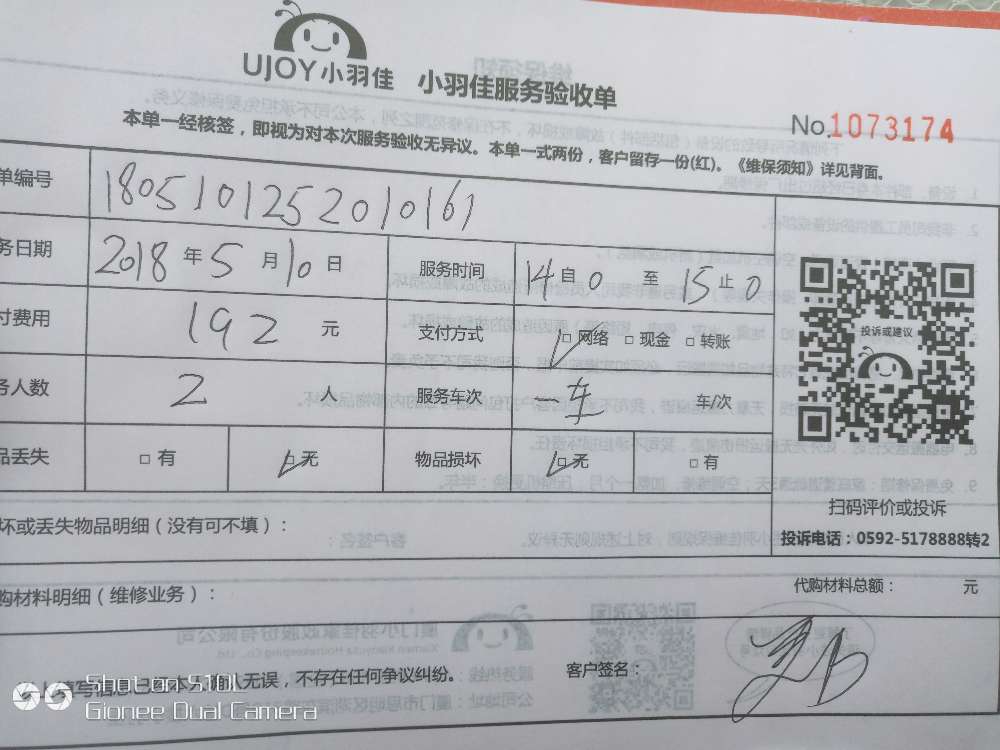 UJOY小羽佳 小羽佳服务验收单
No.1073174
本单一经核签，即视为对本次服务验收无异议。本单一式两份，客户留存一份(红)。《维保须知》详见背面。
单编号 1805101252010161
务日期 2018年5月10日 服务时间 14自0至15止0
付费用 192元 支付方式 □网络 □现金 □转账
务人数 2人 服务车次 一车 车/次
品丢失 □有 □无 物品损坏 □无 □有
投诉或建议
扫码评价或投诉
坏或丢失物品明细（没有可不填）：
投诉电话：0592-5178888转2
购材料明细（维修业务）： 代购材料总额： 元
填写信息已经本人确认无误，不存在任何争议纠纷。 客户签名：
Shot on S10L
Gionee Dual Camera